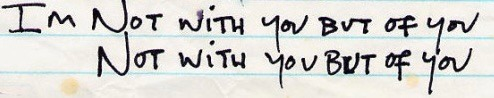 I'm NOT WiTH YOU BUT OF YOU
NOT WiTH YOU BUT OF YOU